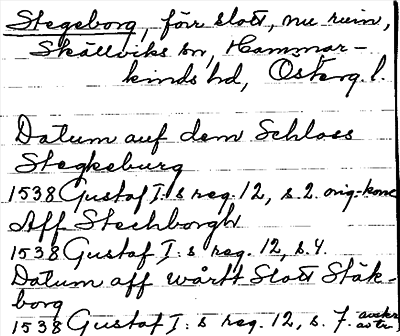 Stegeborg, förr slott, nu ruin,
Skällviks sn, Hammar-
kinds hd, Österg. l.
Datum auf dem Schloss
Stegkeburg
1538 Gustaf I:s reg. 12, s. 2. orig.-konc
Aff Stechborgh
1538 Gustaf I:s reg. 12, s. 4.
Datum aff wårtt Slott Stäk-
borg
1538 Gustaf I:s reg. 12, s. 7.